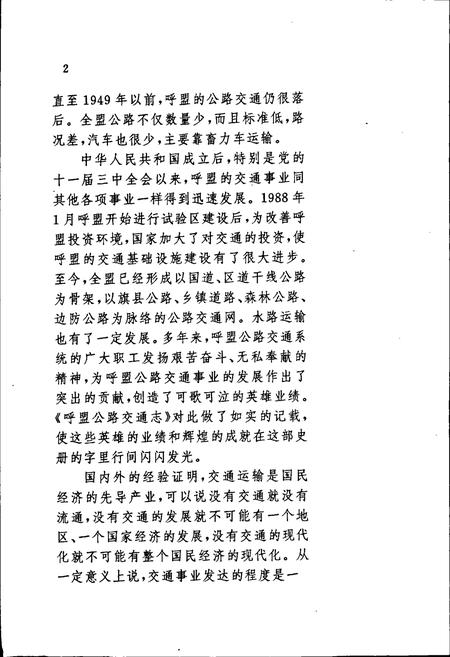 2
直至1949年以前，呼盟的公路交通仍很落
后。全盟公路不仅数量少，而且标准低，路
况差，汽车也很少，主要靠畜力车运输。
中华人民共和国成立后，特别是党的
十一届三中全会以来，呼盟的交通事业同
其他各项事业一样得到迅速发展。1988年
1月呼盟开始进行试验区建设后，为改善呼
盟投资环境，国家加大了对交通的投资，使
呼盟的交通基础设施建设有了很大进步。
至今，全盟已经形成以国道、区道干线公路
为骨架，以旗县公路、乡镇道路、森林公路、
边防公路为脉络的公路交通网。水路运输
也有了一定发展。多年来，呼盟公路交通系
统的广大职工发扬艰苦奋斗、无私奉献的
精神，为呼盟公路交通事业的发展作出了
突出的贡献，创造了可歌可泣的英雄业绩。
《呼盟公路交通志》对此做了如实的记载，
使这些英雄的业绩和辉煌的成就在这部史
册的字里行间闪闪发光。
国内外的经验证明，交通运输是国民
经济的先导产业，可以说没有交通就没有
流通，没有交通的发展就不可能有一个地
区、一个国家经济的发展，没有交通的现代
化就不可能有整个国民经济的现代化。从
一定意义上说，交通事业发达的程度是一